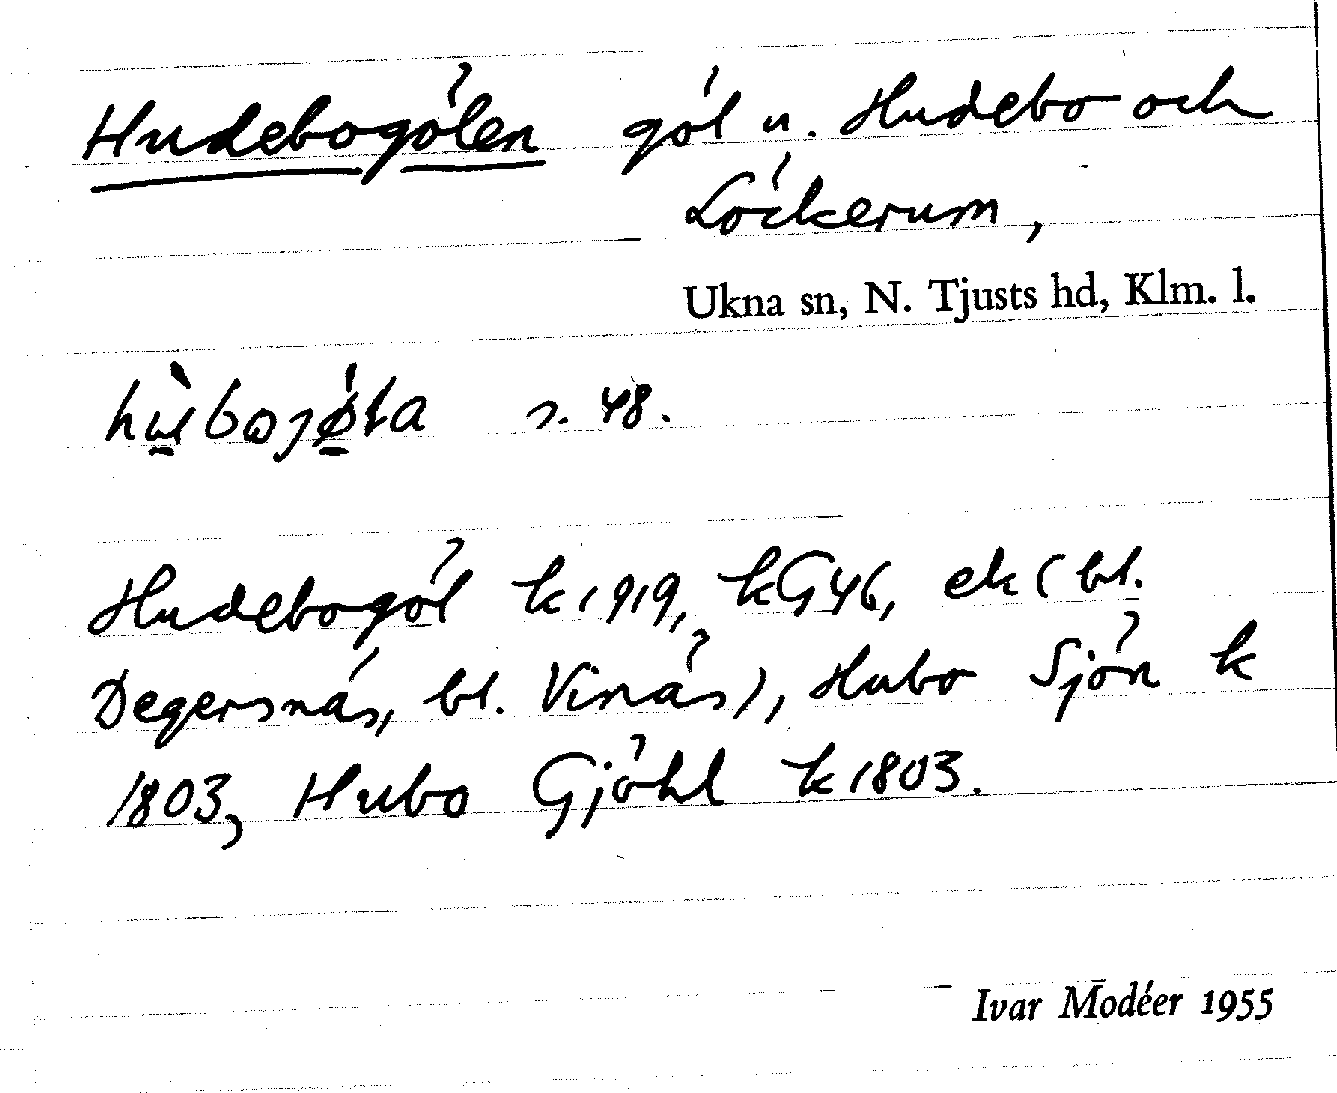 Hudebogölen göl u. Hudebo och
Löckerum,
Ukna sn, N. Tjusts hd, Klm. l.
s. 48.
Hudebogöl k 1919, kG46, ek (bl.
Degersnäs, bl. Vinäs), Hubo Sjön k
1803, Hubo Gjöhl k 1803.
Ivar Modéer 1955